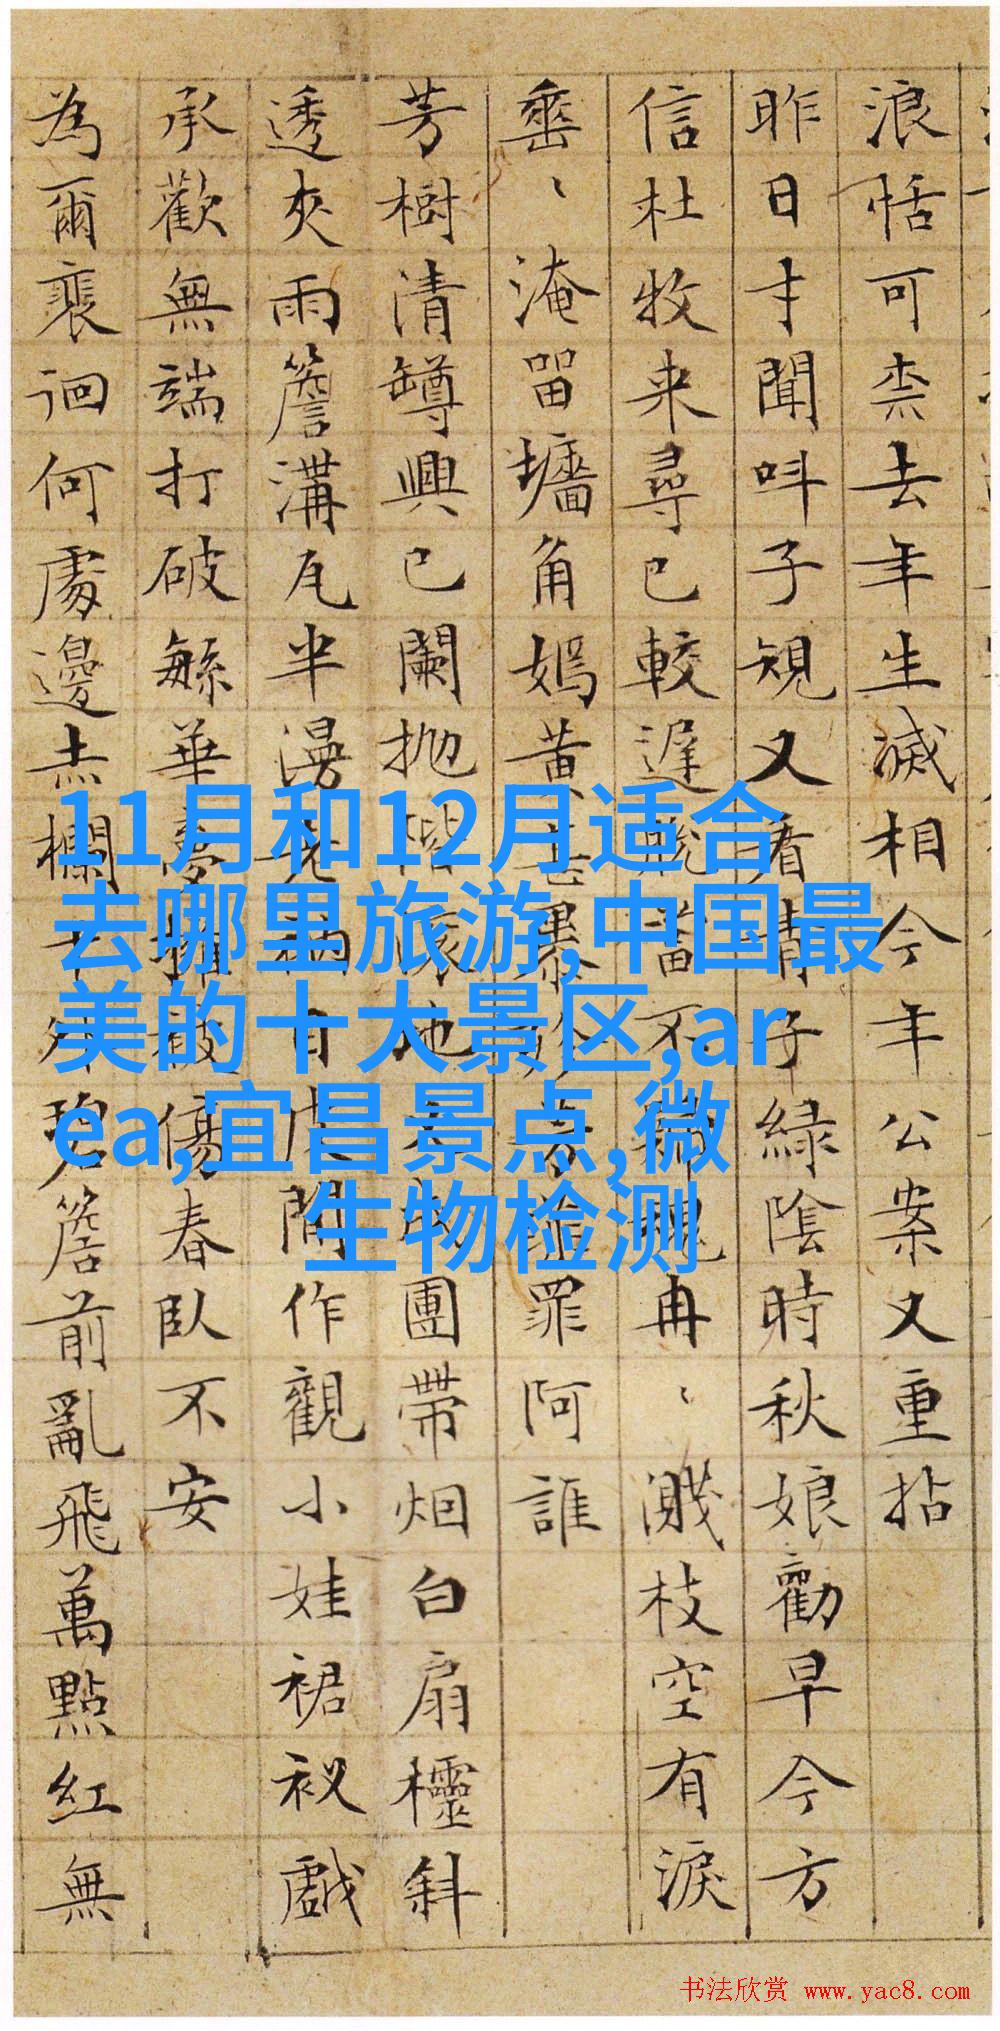 浪恬可柰去年生滅相今年公案又重拈
昨日才聞呌子規又看青子綠陰時秋娘勸早今方
信杜牧来尋已較遲不冉、濺枝空有淚
壑、淹留墻角嫣黄罪阿誰
芳樹清罇興已闌抛團帶烟白扇櫺斜
透夾雨簷溝瓦半漫作觀小娃裙衩戲
承歡無端打破緐華夢傷春臥不安
為爾裵徊何處邊赤欄碧簷前亂飛萬點紅無
11月和12月适合
去哪里旅游,中国最
美的十大景区,ar
ea,宜昌景点,微
生物检测
书法欣赏 www.yac8.com